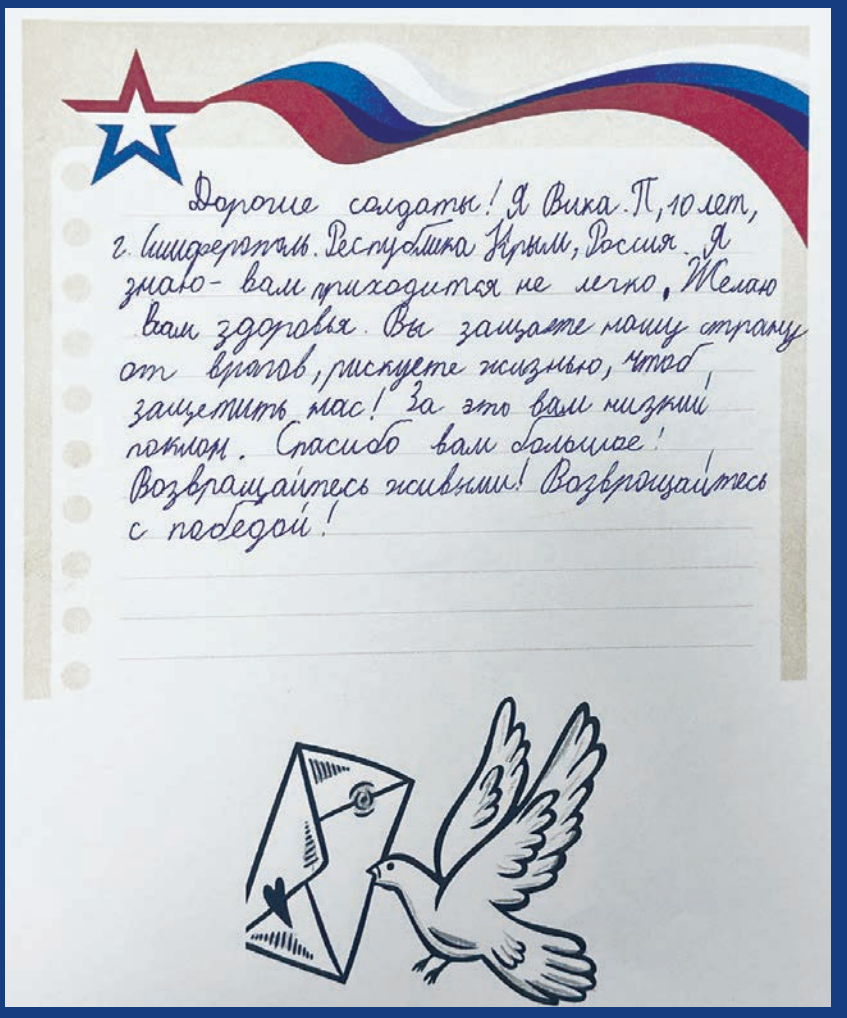 Дорогие солдаты! Я Вика. П, 10 лет,
г. Симферополь. Республика Крым, Россия. Я
знаю - вам приходится не легко. Желаю
вам здоровья. Вы защаете нашу страну
от врагов, рискуете жизнью, чтоб
защетить нас! За это вам низкий
поклон. Спасибо вам большое!
Возвращайтесь живыми! Возврощайтесь
с победой!